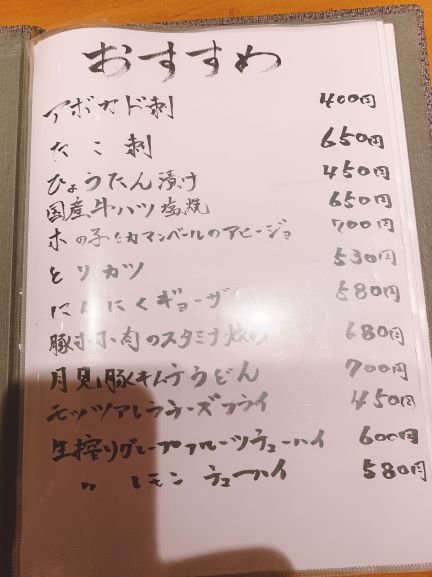 おすすめ
アボカド刺 400円
たこ刺 650円
ひょうたん漬け 450円
国産牛ハツ塩焼 650円
木の子とカマンベールのアヒージョ 700円
とりカツ 530円
にんにくギョーザ 580円
豚ホホ肉のスタミナ炒め 680円
月見豚キムチうどん 700円
モッツアレラチーズフライ 450円
生搾りグレープフルーツチューハイ 600円
〃 レモンチューハイ 580円